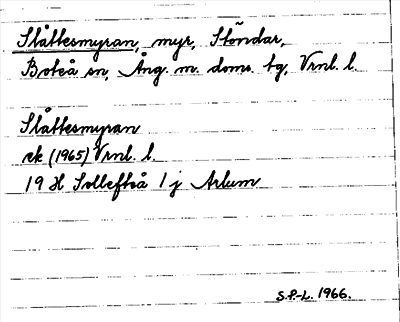 Slåttesmyran, myr, Stöndar,
Boteå sn, Ång. m. doms. tg, Vrnl. l.
Slåttesmyran
ek (1965) Vrnl. l.
19 H Sollefteå 1 j Arlum
S.P.-L. 1966.